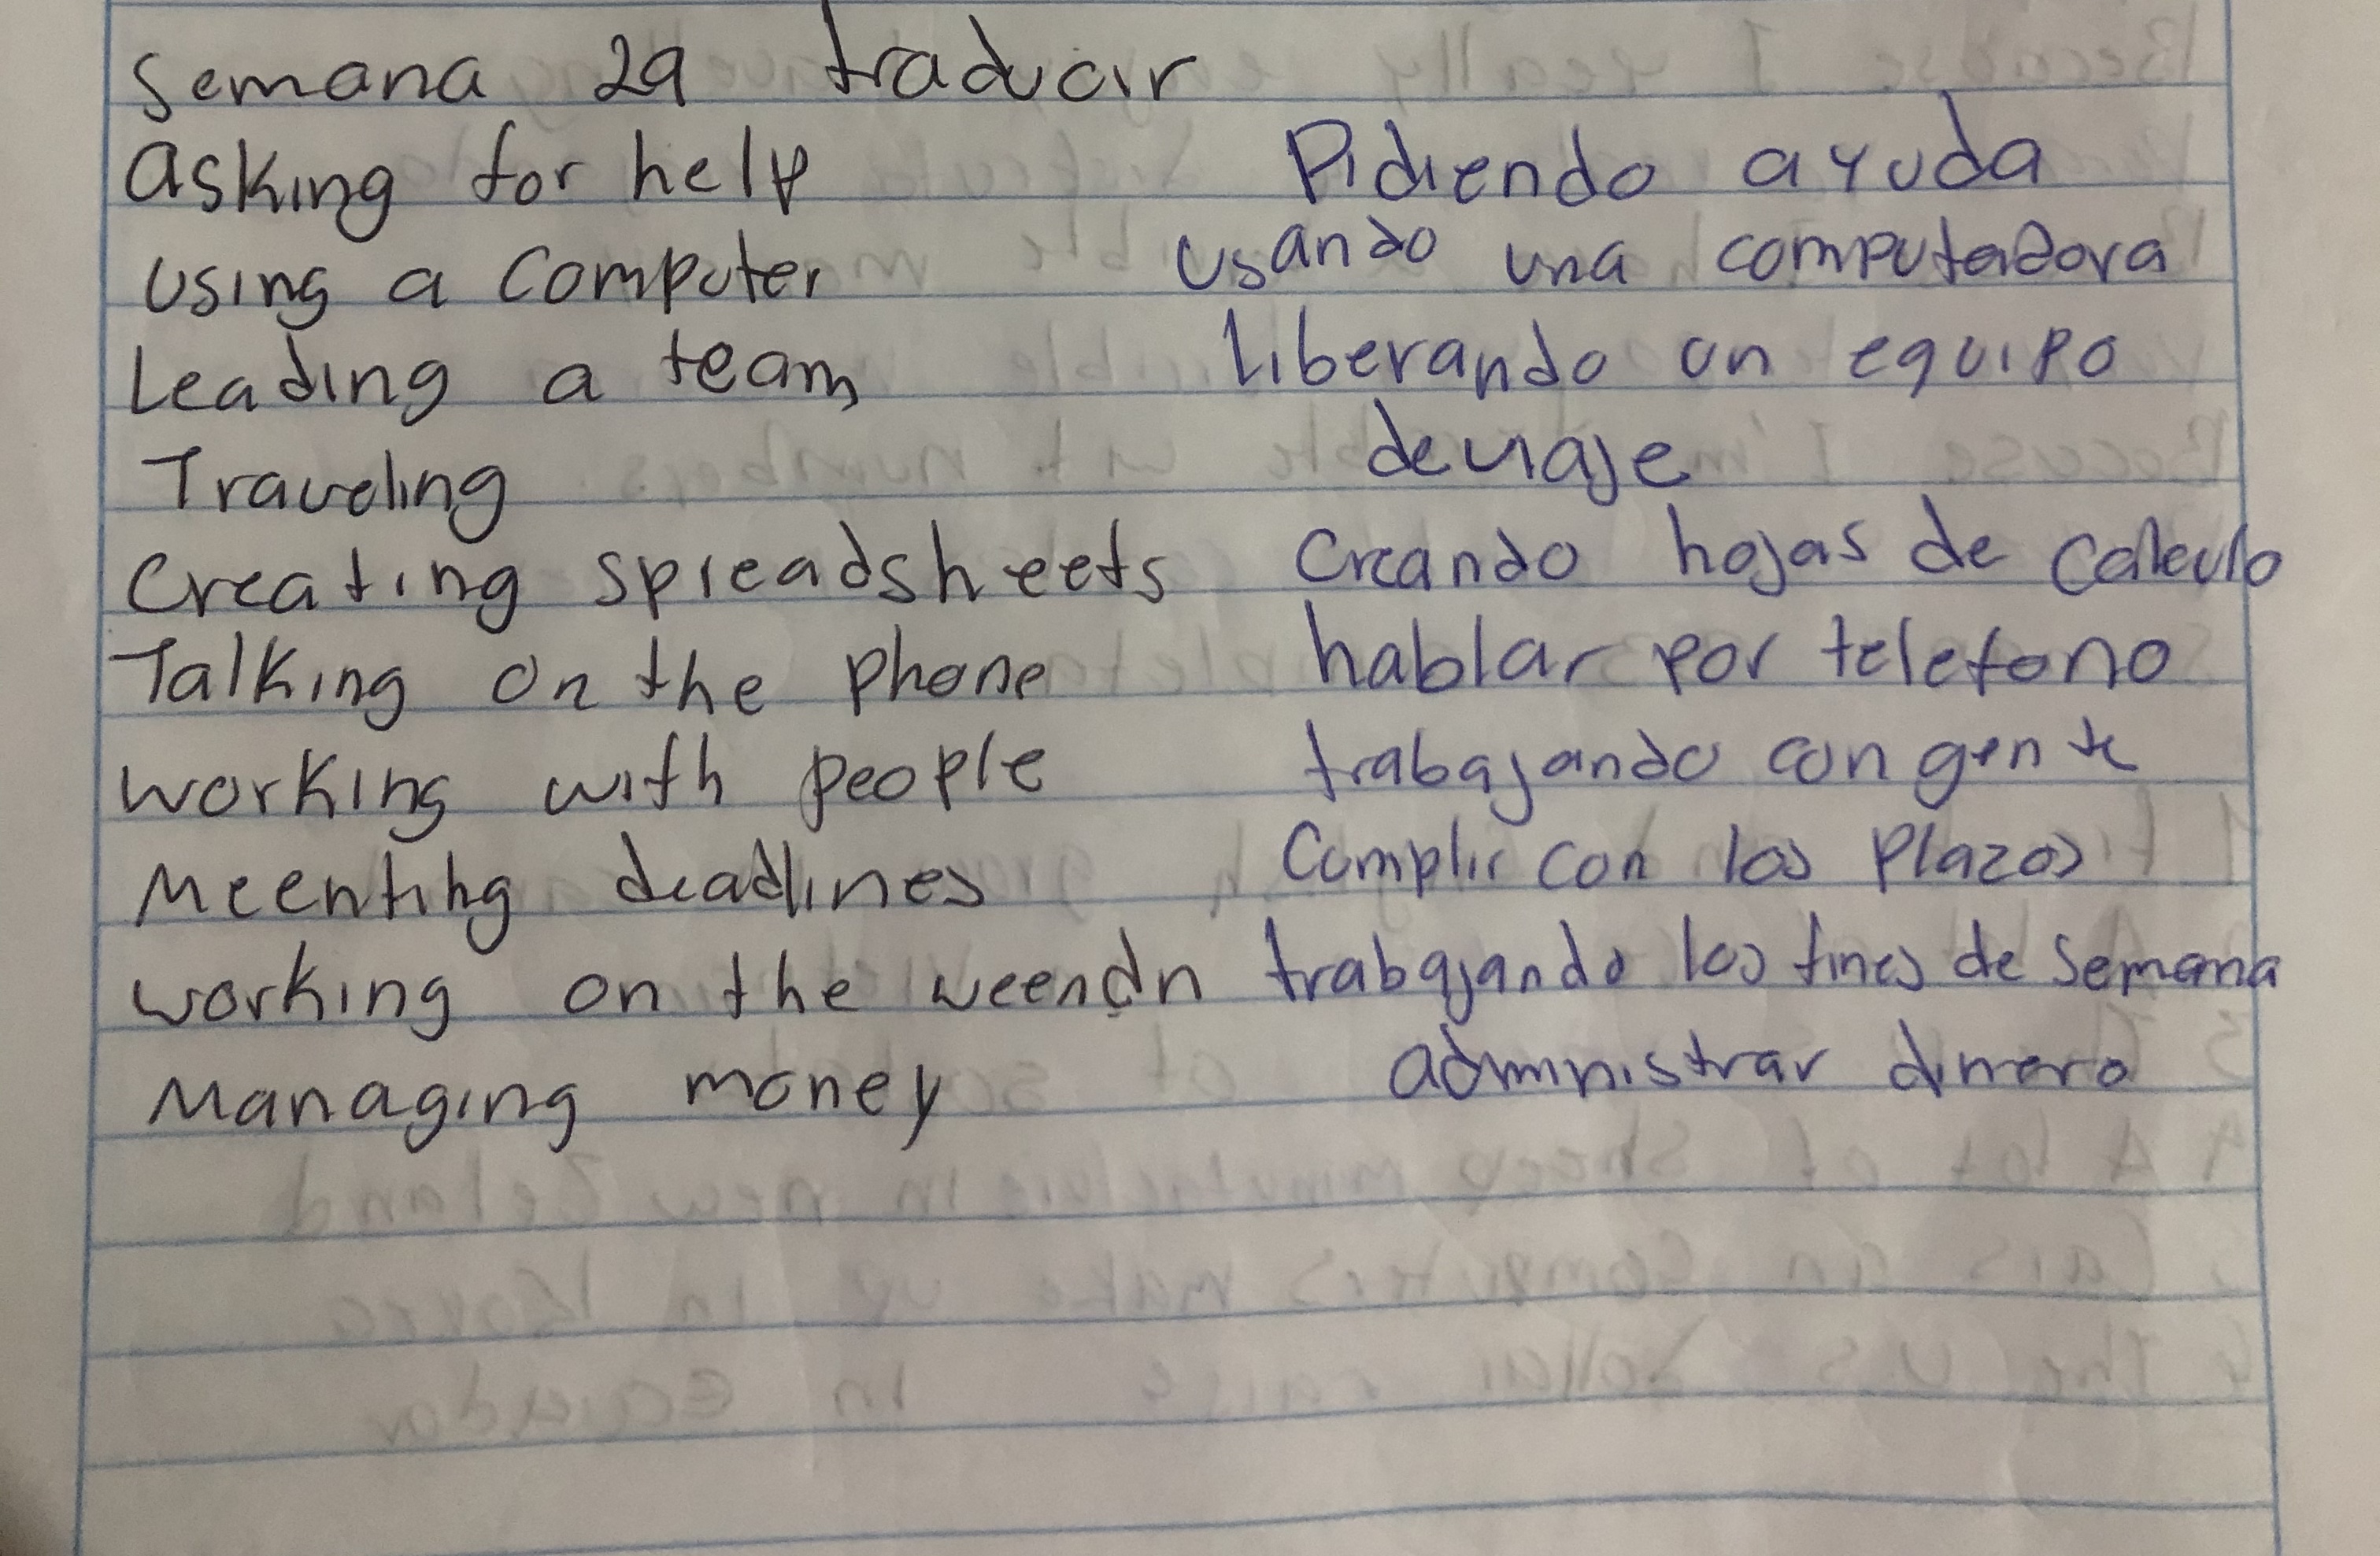 Semana 29 traducir
asking for help Pidiendo ayuda
using a computer usando una computadora
Leading a team liberando un equipo
Traveling de viaje
Creating spreadsheets Creando hojas de calculo
Talking on the phone hablar por telefono
working with people trabajando con gente
Meenting deadlines Cumplir con los plazos
working on the trabajando los fines de semana
Managing money administrar dinero